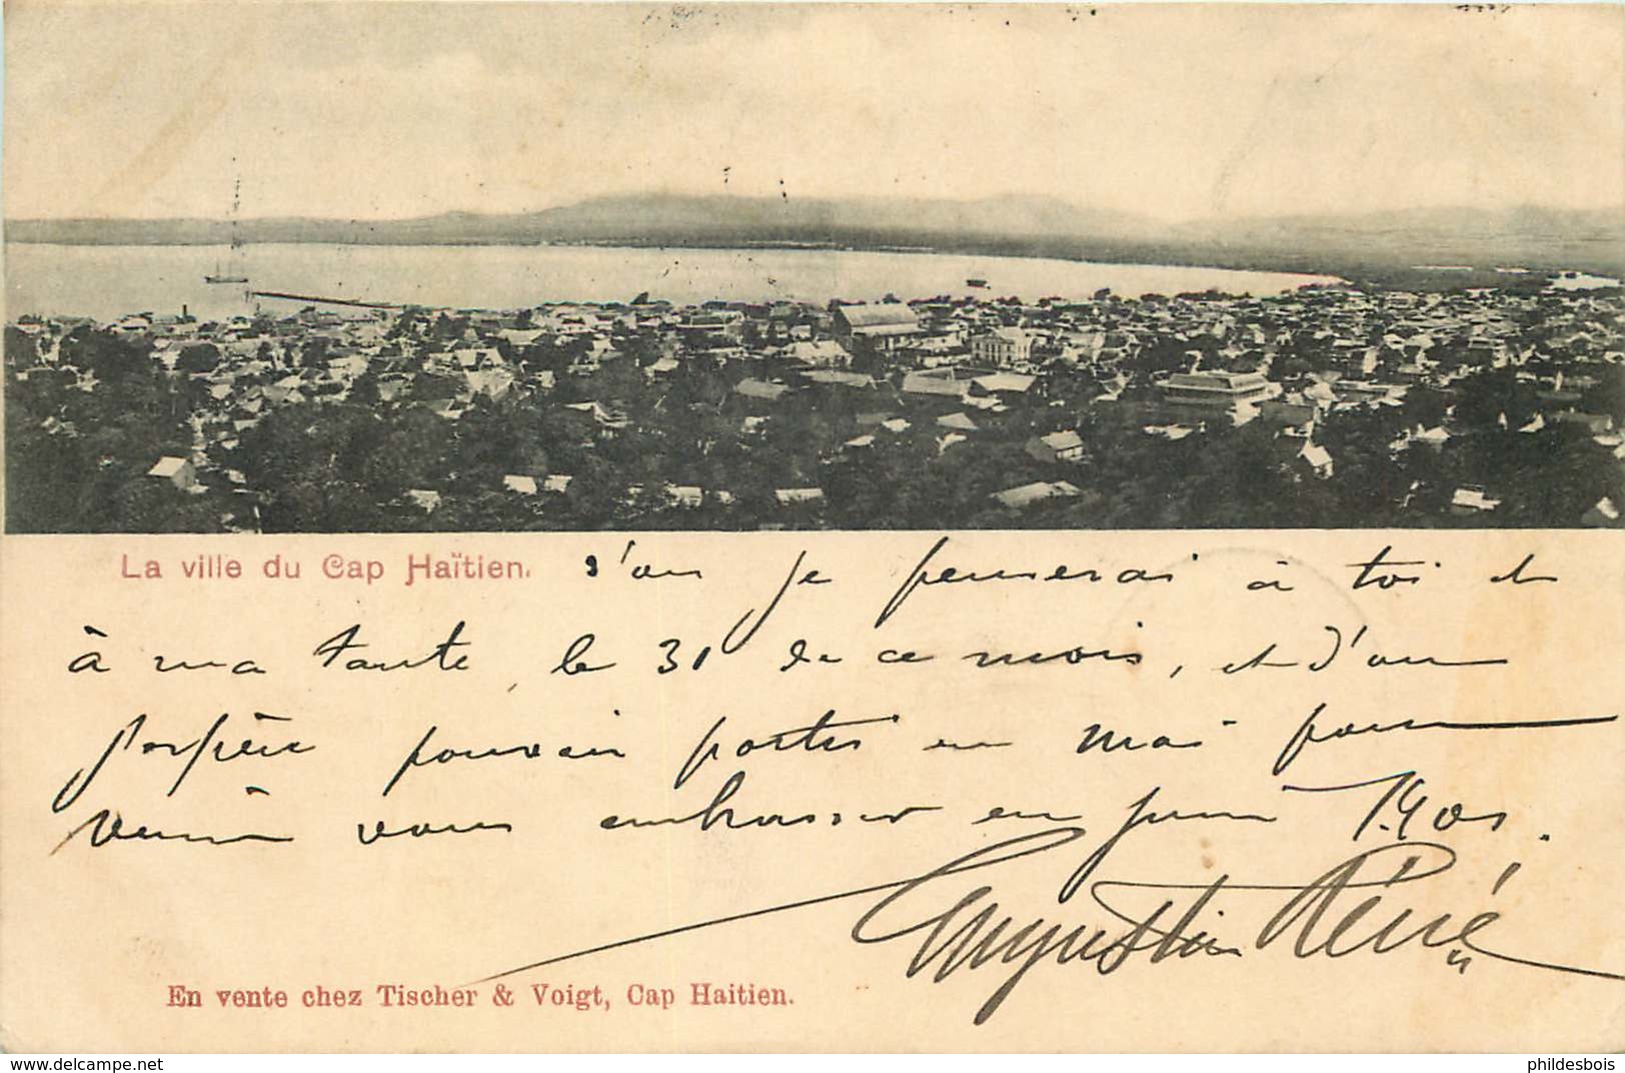 La ville du Cap Haïtien.
je penserai à toi et
à ma tante, le 31 de ce mois, et d'où
j'espère pouvoir partir en mai pour
venir vous embrasser en juin 1901.
Augustin Réné
En vente chez Tischer & Voigt, Cap Haitien.
www.delcampe.net
phildesbois